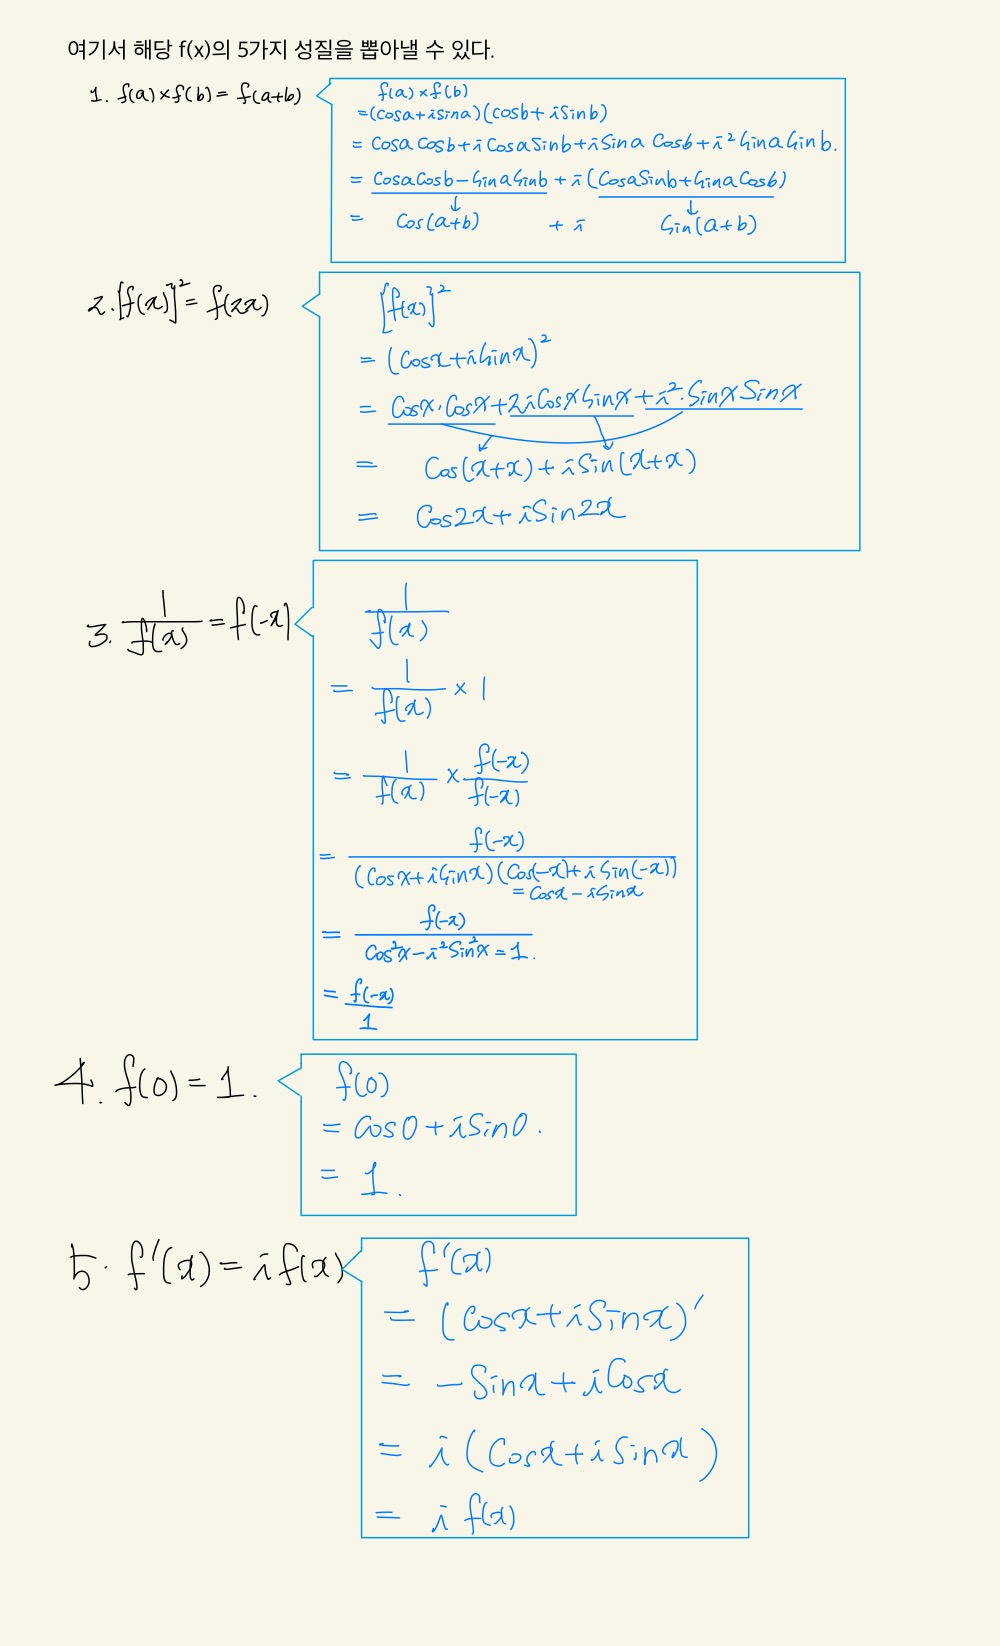 여기서 해당 f(x)의 5가지 성질을 뽑아낼 수 있다.
1. f(a)×f(b) = f(a+b)
f(a)×f(b)
=(cosa+isina)(cosb+isinb)
= cosacosb+icosasinb+isina cosb+i²sinasinb.
= cosacosb-sinasinb + i(cosasinb+sinacosb)
= cos(a+b) + i sin(a+b)
2. [f(x)]² = f(2x)
[f(x)]²
= (cosx+isinx)²
= cosx·cosx+2icosxsinx+i²·sinxsinx
= cos(x+x)+isin(x+x)
= cos2x+isin2x
3. 1/f(x) = f(-x)
1/f(x)
= 1/f(x) × 1
= 1/f(x) × f(-x)/f(-x)
= f(-x)/(cosx+isinx)(cos(-x)+isin(-x))
= cosx-isinx
= f(-x)/cos²x-i²sin²x=1.
= f(-x)/1
4. f(0)=1.
f(0)
= cos0+isin0.
= 1.
5. f'(x)=if(x)
f'(x)
= (cosx+isinx)'
= -sinx+icosx
= i(cosx+isinx)
= i f(x)